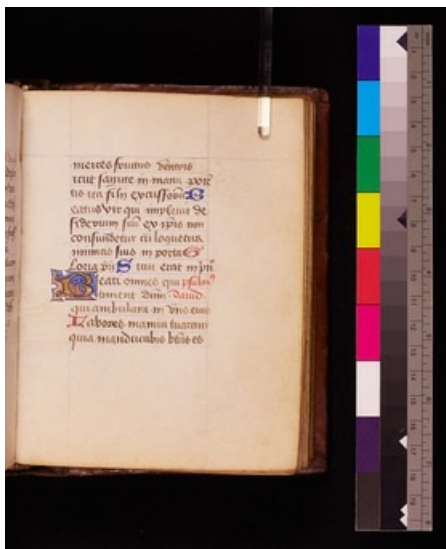 merces fructus ventris
icut sagitte in manu potē
tis ita filii excussorū B
eatus vir qui implevit de
siderium suū ex ipis non
confundetur cū loquetur
inimicis suis in porta G
loria pri S icut erat in pri
Beati omnes qui psalm9
timent dūm david
qui ambulant in viis eius
Labores manuū tuarum
quia manducabis btūs es